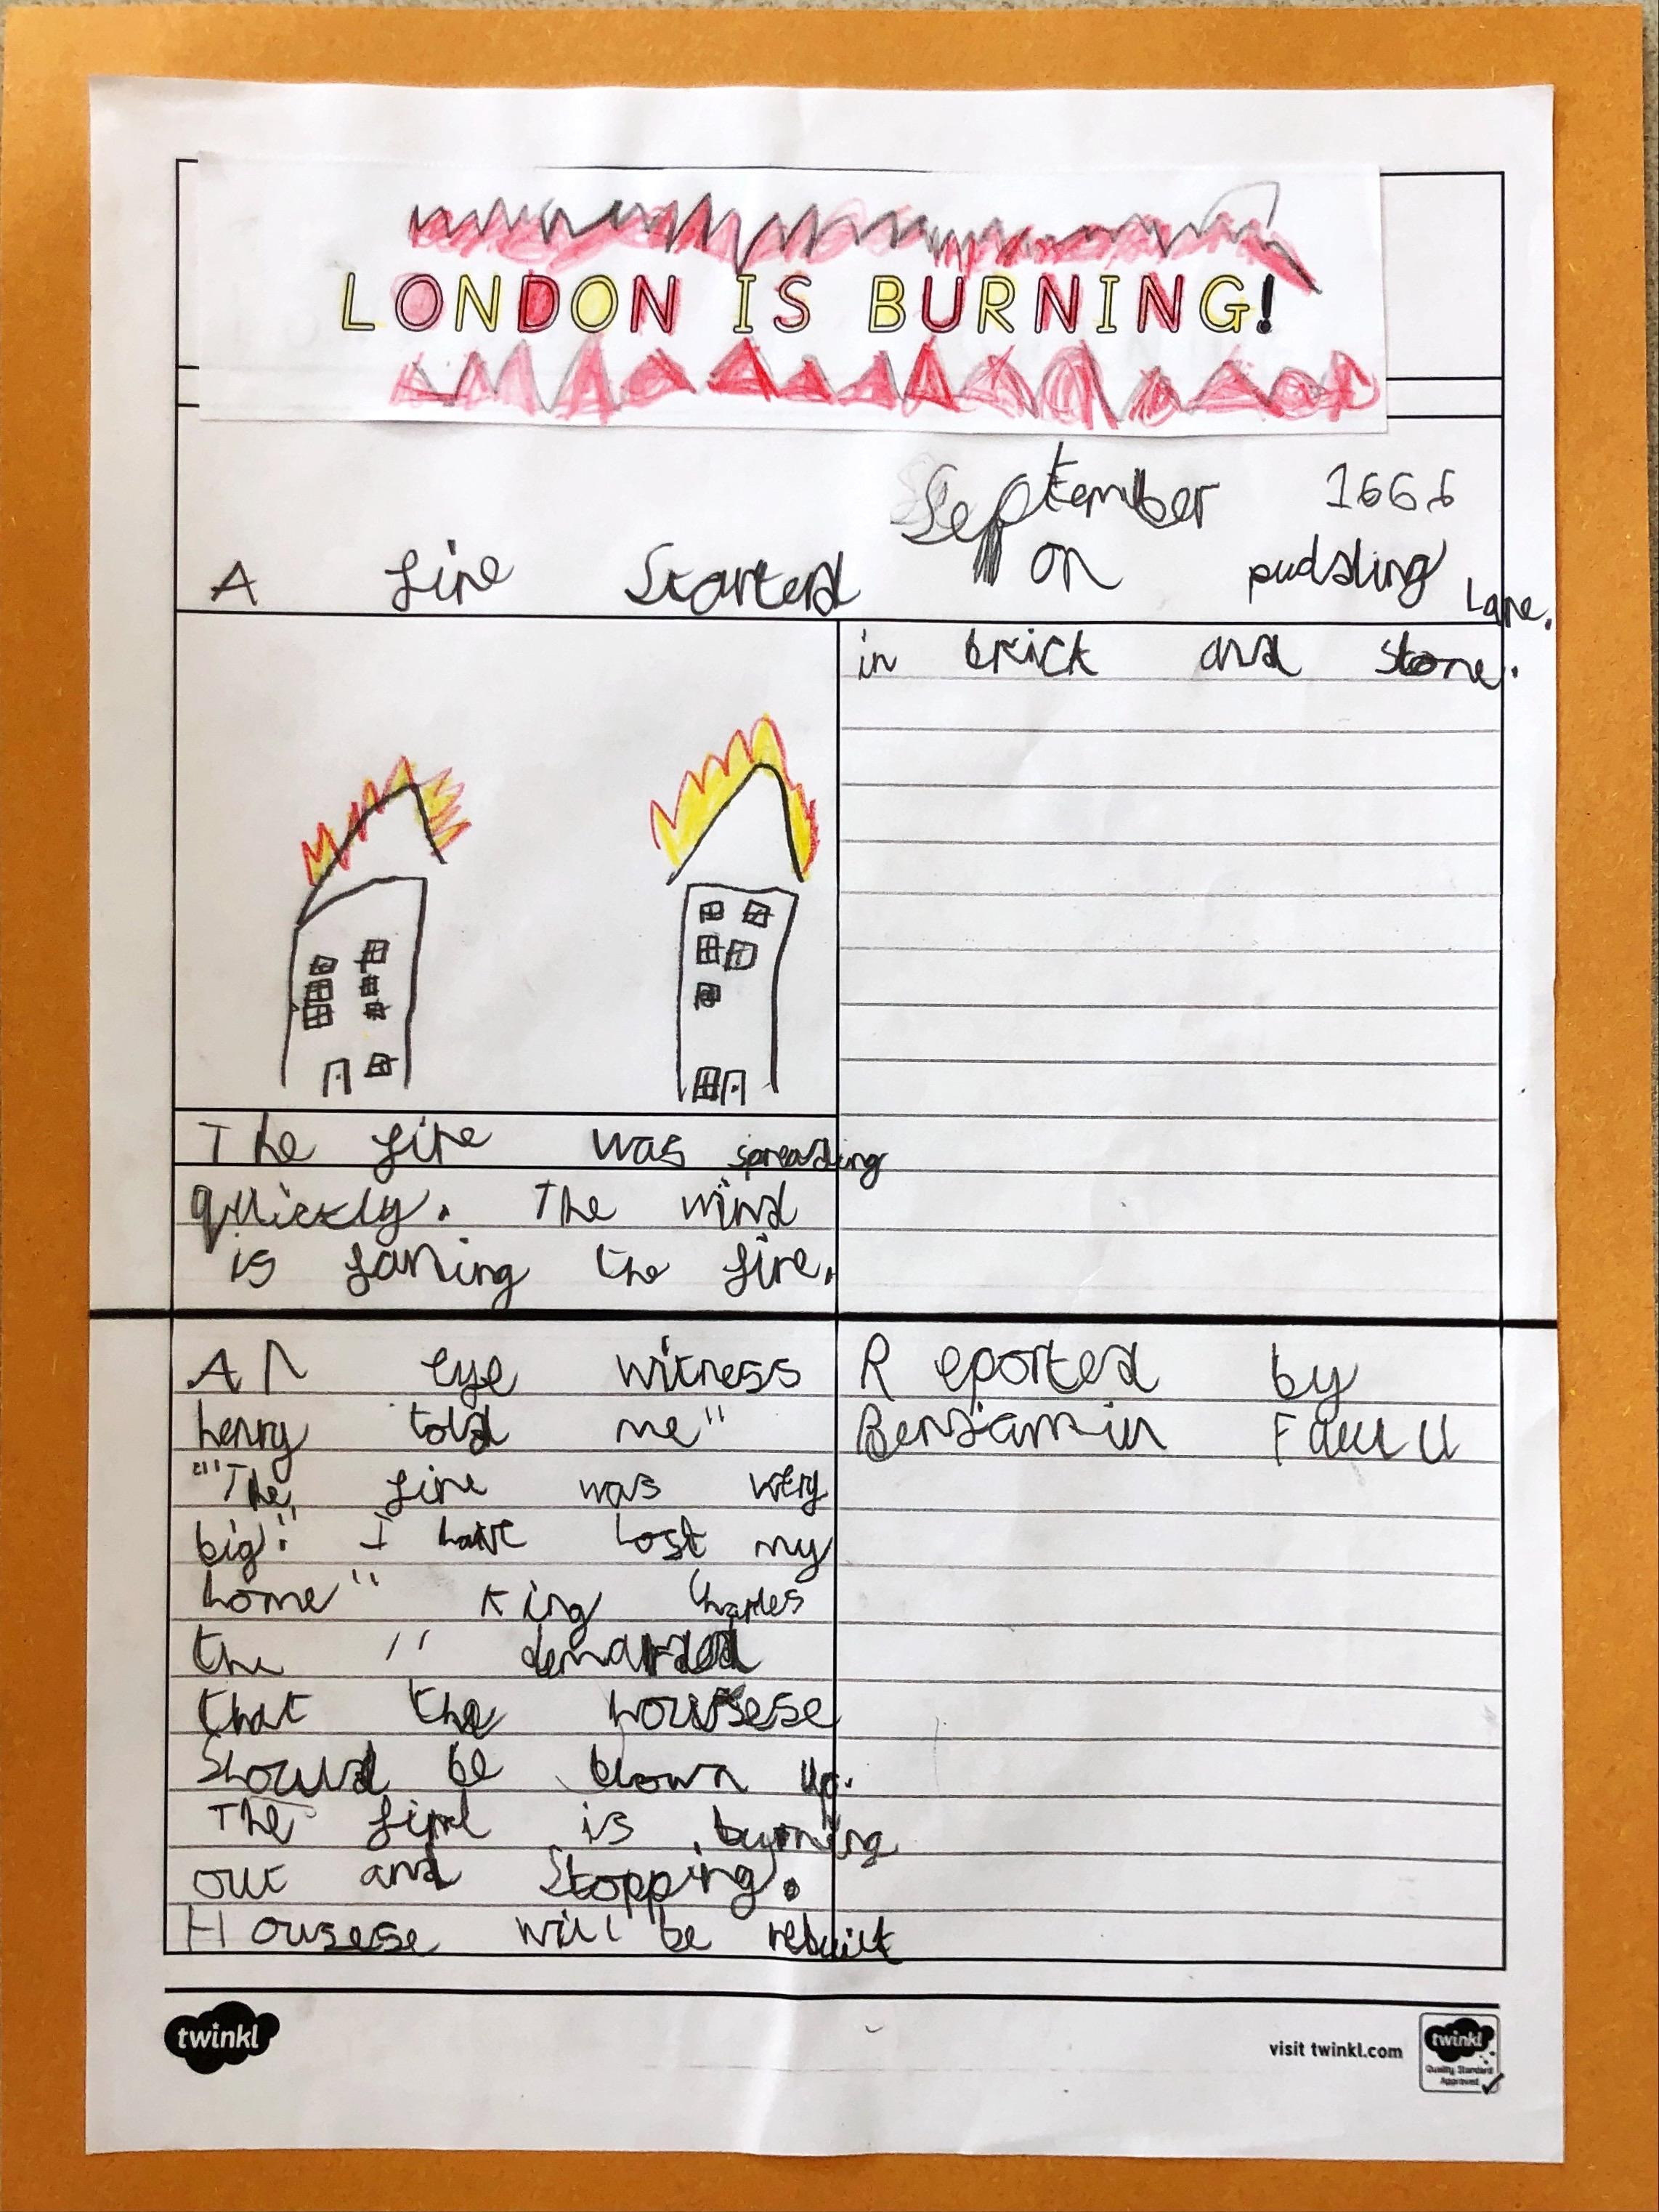 LONDON IS BURNING!
September 1666
A fire Started on pudding Lane.
The fire was spreading
quickly. The wind
is faning the fire.
AN eye witness
henry told me"
"The fire was very
big." I have lost my
home" King Charles
the II demanded
that the housese
Should be blown up.
The fire is burning
out and Stopping.
Housese will be rebuilt
in brick and stone.
Reported by
Benjamin
twinkl
visit twinkl.com
twinkl
Quality Standard
Approved